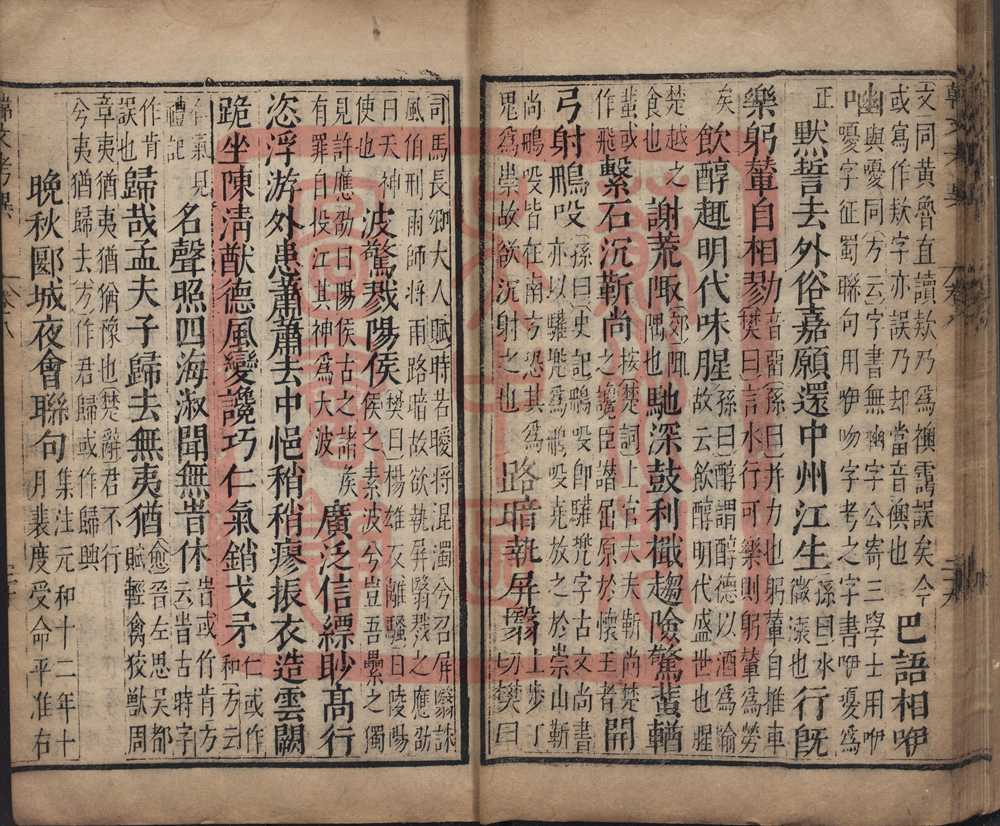 文同黃魯直讀欸乃爲襖靄誤矣今
或寫作欸字亦誤乃却當音襖也 巴語相咿
呦 幽與憂同方云字書無呦字公寄三學士用咿
嚘字征蜀聯句用咿吻字考之字書咿嚘爲
正 默誓去外俗嘉願還中州江生 孫曰水
微漲也 行既
樂躬輦自相勠 音留孫曰并力也躬輦自推車
樊曰言水行可樂則躬輦爲勞
矣 飲醇趣明代味腥 孫曰醇謂醇德以酒爲喻
故云飲醇明代盛世也腥
食也
楚越之 謝荒陬 郊陬
隅也 馳深鼓利檝趨險驚蜚輶
蜚或
作飛 繫石沉靳尚 按楚詞上官大夫靳尚楚
之讒臣譖屈原於懷王者 開
弓射鵬吺 孫曰史記鵬吺即驩兠字古文尚書
亦以驩兠爲鵬吺堯放之於崇山靳
尚鵬吺皆在南方恐其爲
鬼爲祟故欲沉射之也 路暗執屏翳 上步丁
切樊曰
司馬長卿大人賦時若曖將混濁兮召屏翳誅
風伯刑雨師將雨路暗故欲執屏翳戮之應劭
曰天神
使也 波驚戮陽侯 樊曰楊雄反離騷曰陵陽
侯之素波兮豈吾纍之獨
見許應劭曰陽侯古之諸侯
有罪自投江其神爲大波 廣泛信縹眇高行
恣浮游外患蕭蕭去中悒稍稍瘳振衣造雲闕
跪坐陳清猷德風變讒巧仁氣銷戈矛 仁或作
和方云
仁氣見
禮記 名聲照四海淑聞無旹休 旹或作肯方
云旹古時字
作肯
誤也 歸哉孟夫子歸去無夷猶 愈晉左思吳都
賦輕禽狡獸周
章夷猶猶豫也楚辭君不行
兮夷猶歸去方作君歸或作歸與
晚秋郾城夜會聯句 集注元和十二年十
月裴度受命平淮右
韓文考異 卷八